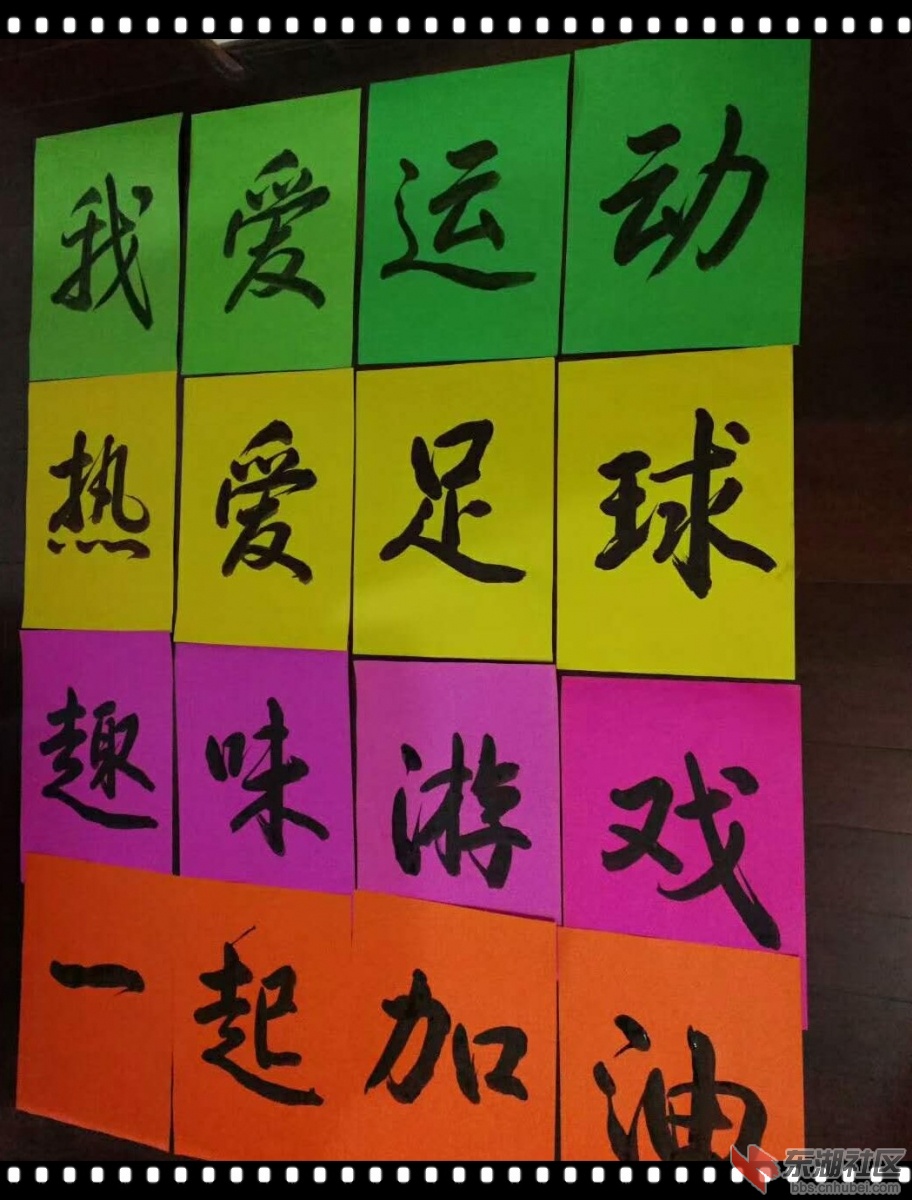 我爱运动
热爱足球
趣味游戏
一起加油
东湖社区
bbs.cnhubei.com